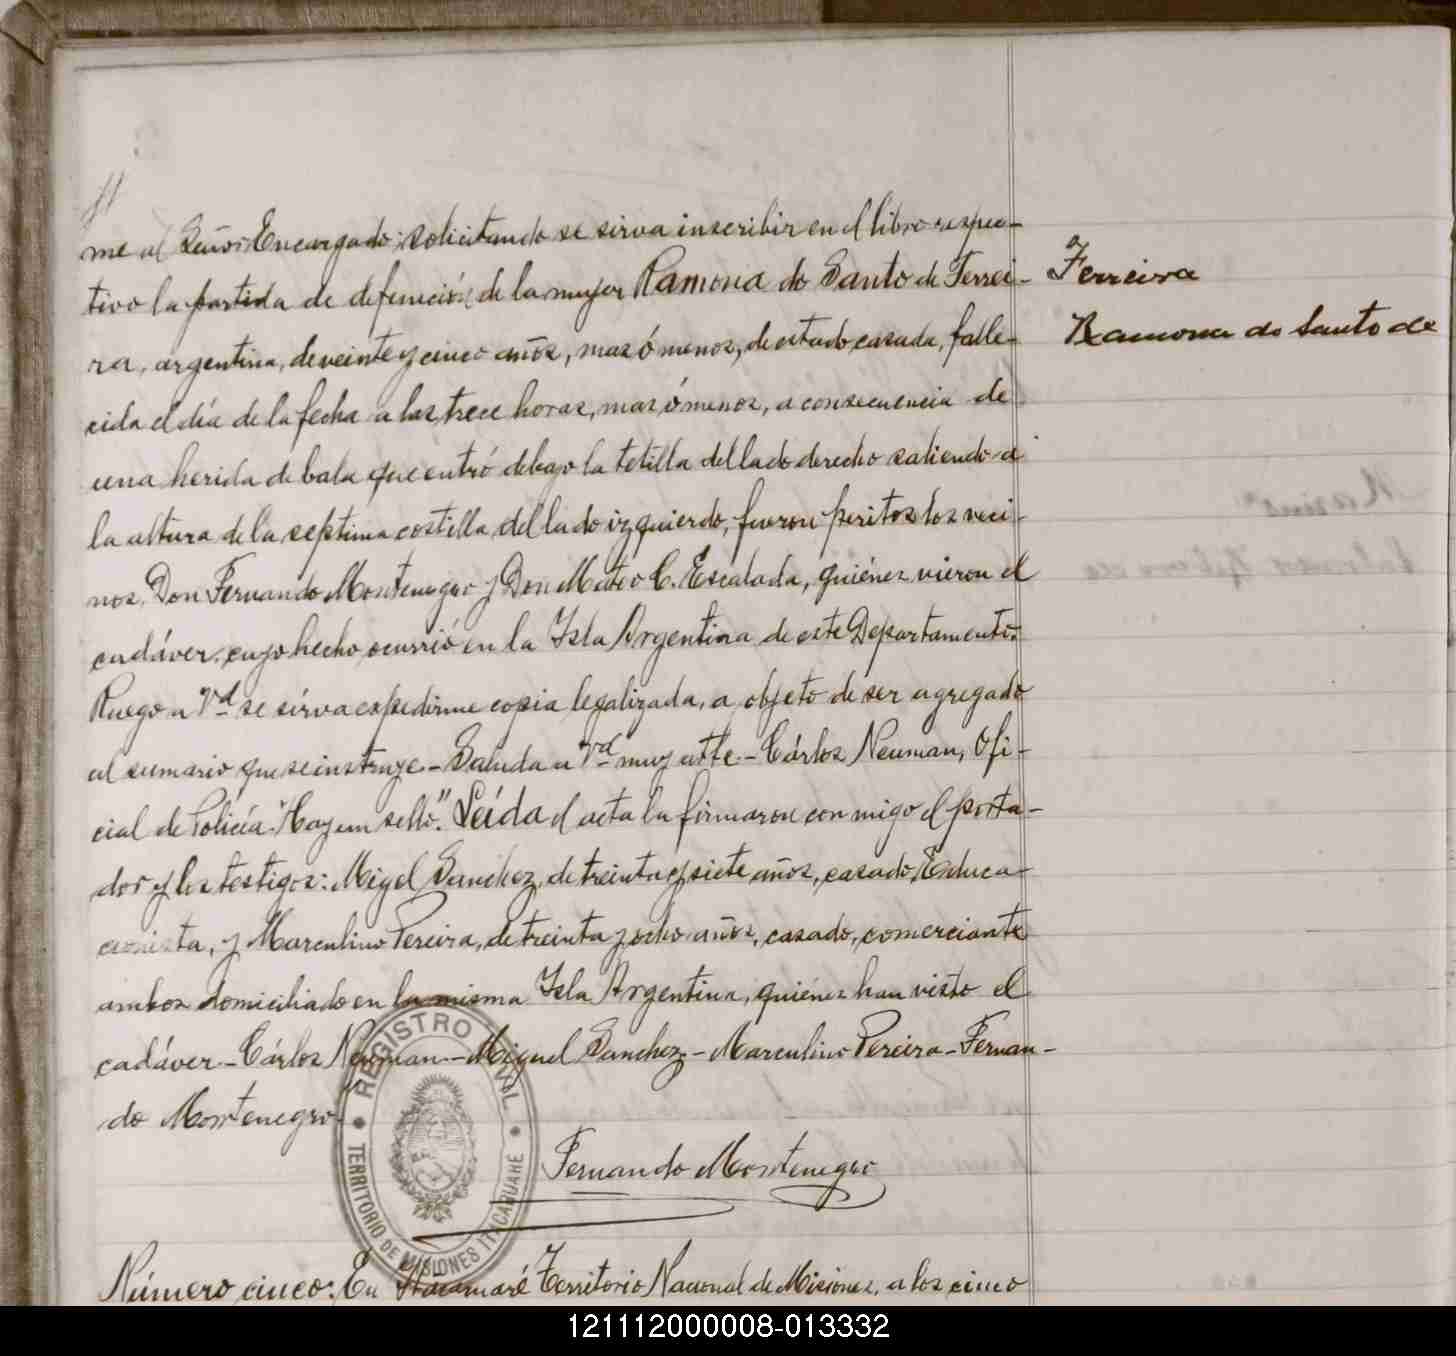 me al Señor Encargado; solicitando se sirva inscribir en el libro respec-
tivo la partida de defunción de la mujer Ramona do Santo de Ferrei-
ra, argentina, de veinte y cinco años, mas ó menos, de estado casada, falle-
cida el día de la fecha a las trece horas, mas ó menos, a consecuencia de
una herida de bala que entró debajo la tetilla del lado derecho saliendo a
la altura de la septima costilla del lado izquierdo, fueron peritos los veci-
nos, Don Fernando Montenegro y Don Mateo C. Escalada, quiénes vieron el
cadáver, cuyo hecho ocurrió en la Isla Argentina de este Departamento.
Ruego a Vd se sirva expedirme copia legalizada, a objeto de ser agregado
al sumario que se instruye - Saluda a Vd muy atte. - Cárlos Neuman, Ofi-
cial de Policía. "Hay un sello". Leída el acta la firmaron con migo el porta-
dor y los testigos: Migel Sanchez, de treinta y siete años, casado, Educa-
cionista, y Marculino Pereira, de treinta y ocho años, casado, comerciante
ambos domiciliado en la misma Isla Argentina, quiénes han visto el
cadáver. - Cárlos Neuman - Miguel Sanchez - Marculino Pereira - Fernan-
do Montenegro.
Ferreira
Ramona do Santo de
REGISTRO CIVIL
TERRITORIO DE MISIONES ITACARUARE
Fernando Montenegro
Número cinco: En Itacaruaré Territorio Nacional de Misiones, a los cinco
121112000008-013332